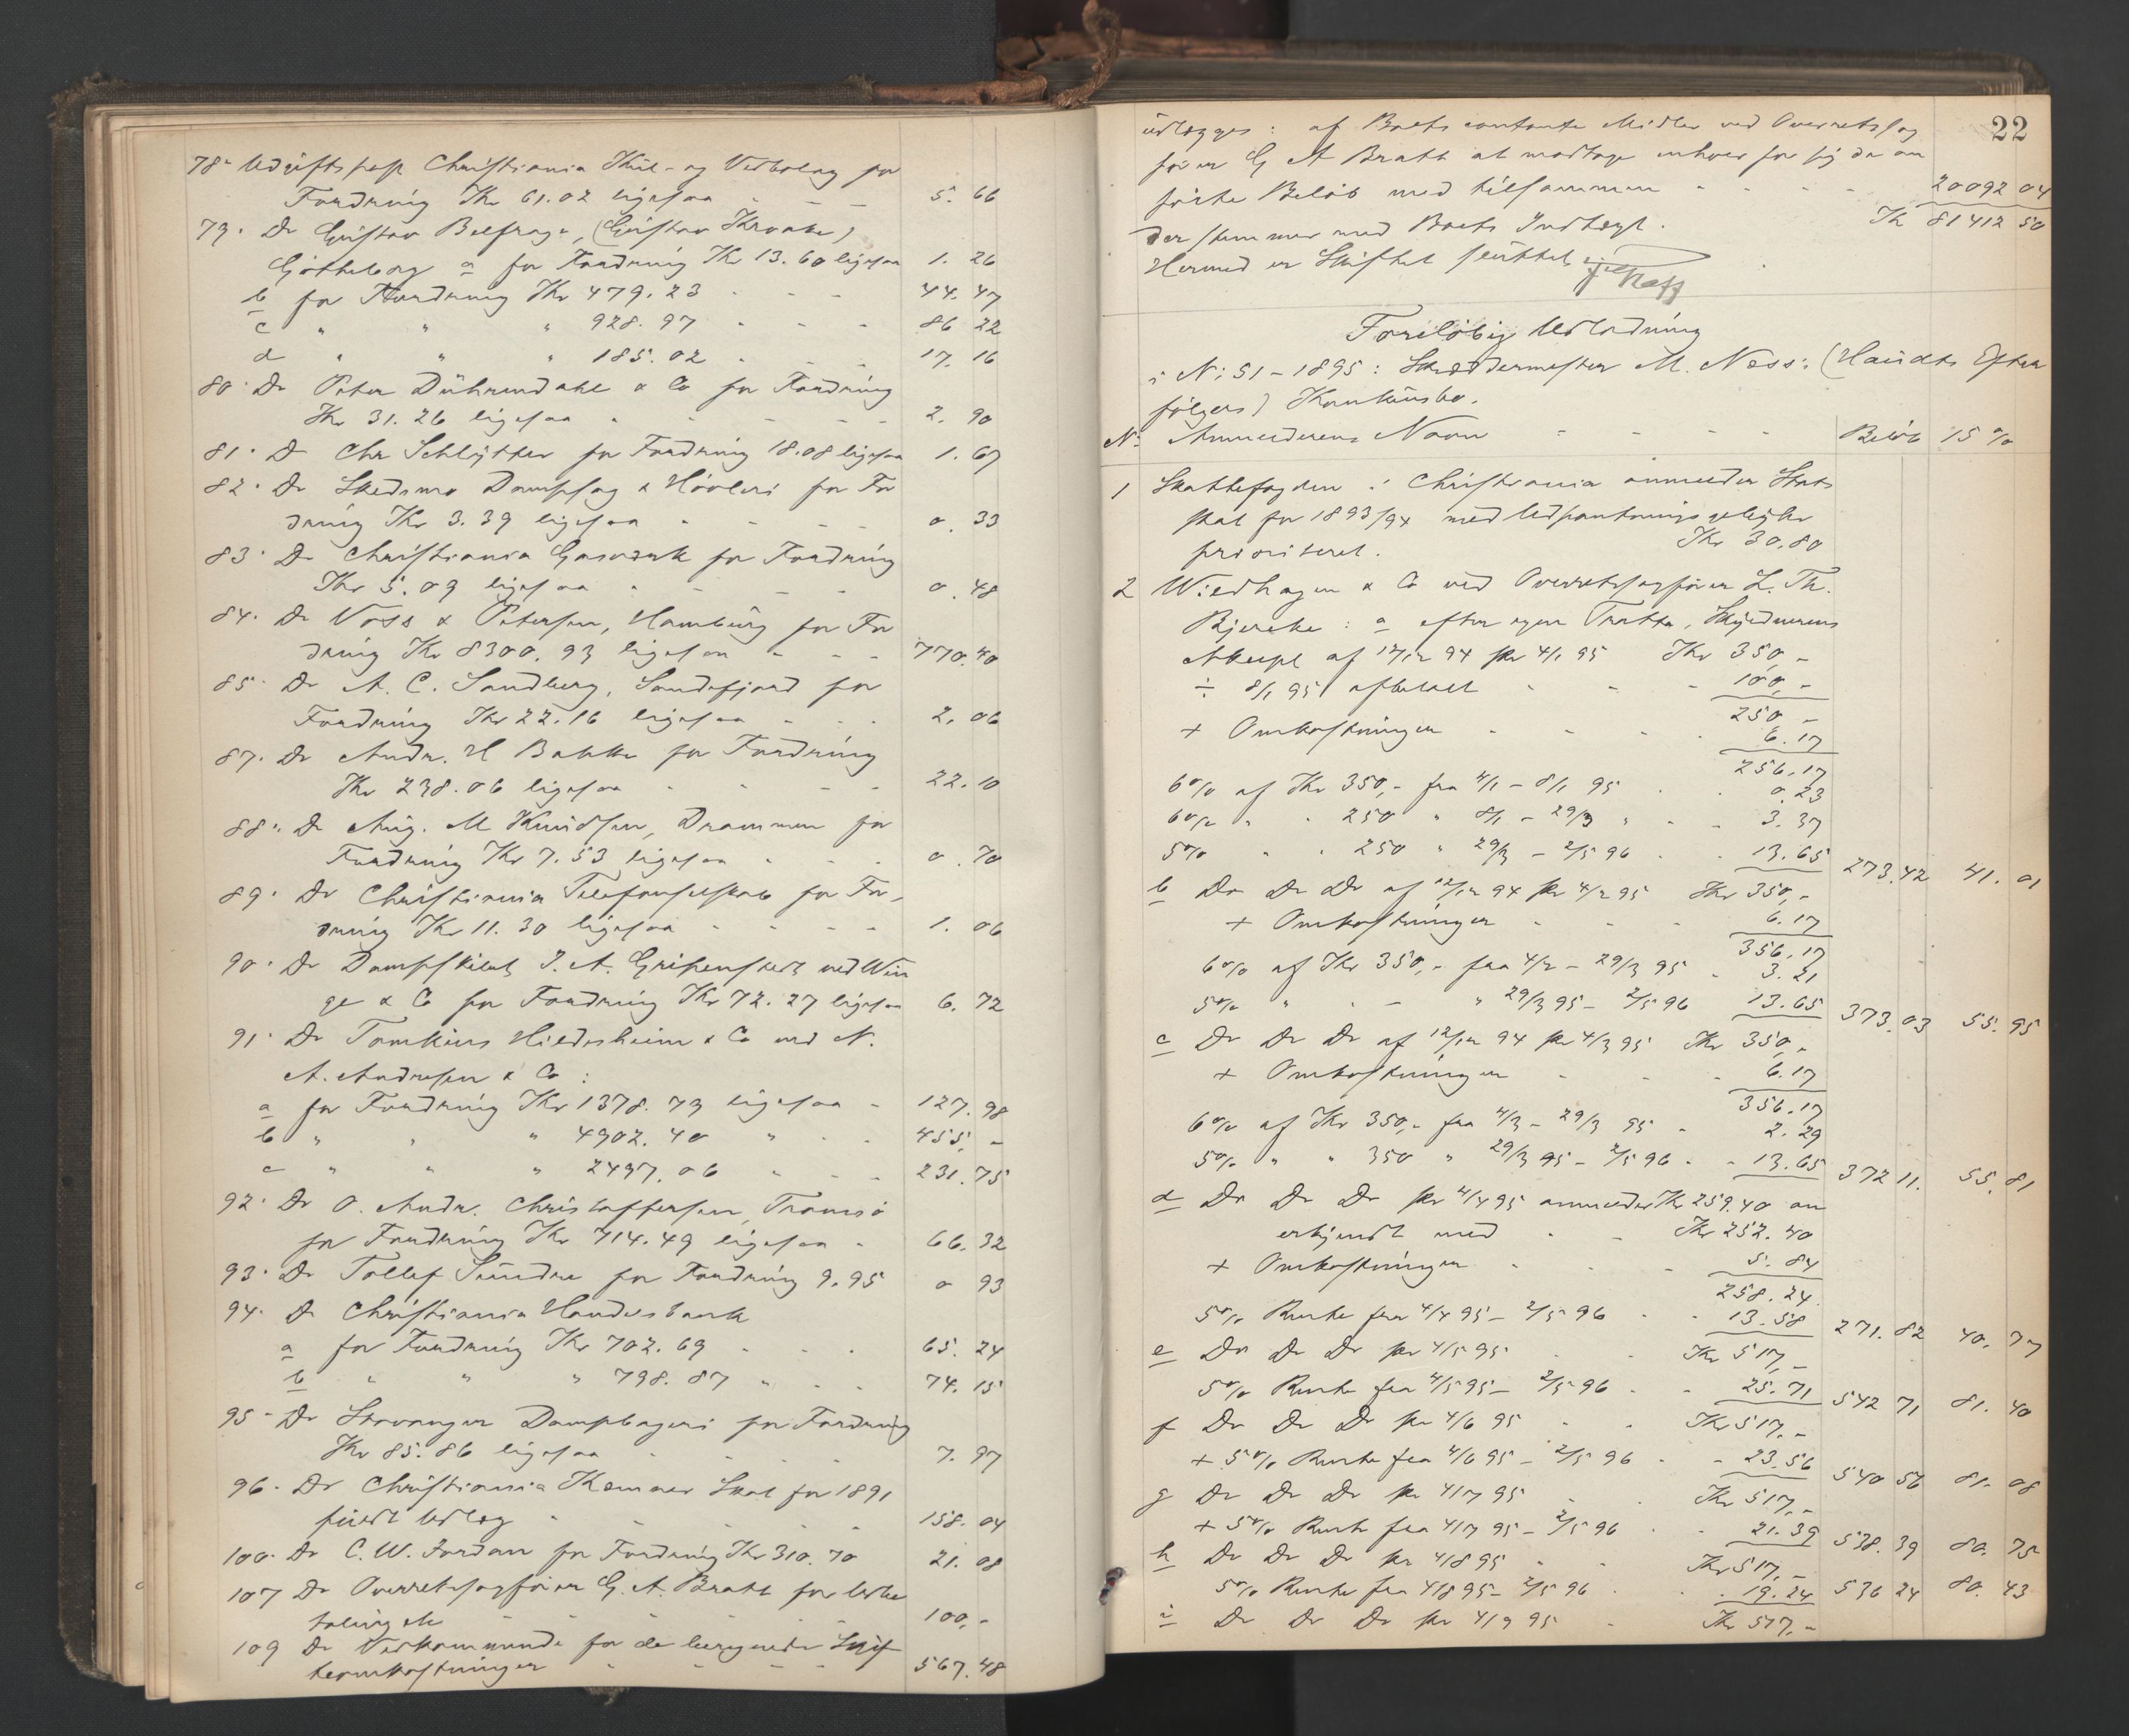 78. Udgiftspost Christiania Kul- og Vedbolag for
Fordring Kr 61.02 ligesaa - - - 5. 66
79. Do Gustav Belfrage, (Gustav Kroake)
Gøtheborg a for Fordring Kr 13.60 ligesaa 1. 26
b for Fordring Kr 479.23 - - - 44. 47
c " " " 928.97 - - - 86 22
d " " " 185.02 - - - 17. 16
80. Do Peter Dührendahl & Co for Fordring
Kr 31.26 ligesaa - - - - - 2. 90
81. Do Chr Schlytter for Fordring 18.08 ligesaa 1. 67
82. Do Skedsmo Dampsag & Høvleri for For
dring Kr 3.39 ligesaa - - - - 0. 33
83. Do Christiania Gasværk for Fordring
Kr 5.09 ligesaa - - - - 0. 48
84. Do Voss & Petersen, Hamburg for For
dring Kr 8300.93 ligesaa - - - 770. 40
85. Do A. C. Sandberg, Sandefjord for
Fordring Kr 22.16 ligesaa - - - 2. 06
87. Do Andr. H Bakke for Fordring
Kr 238.06 ligesaa - - - - 22. 10
88. Do Aug. M Knudsen, Drammen for
Fordring Kr 7.53 ligesaa - - - 0. 70
89. Do Christiania Telefonselskab for For-
dring Kr 11.30 ligesaa - - - - 1. 06
90. Do Dampskibet J. A. Gripenstedt ved Win
ge & Co for Fordring Kr 72.27 ligesaa 6. 72
91. Do Tomkins Hildesheim & Co ved N.
A. Andresen & Co :
a for Fordring Kr 1378.73 ligesaa - 127. 98
b " " " 4902.40 " - - 455, -
c " " " 2497.06 - - - 231. 75
92. Do O. Andr. Christoffersen, Tromsø
for Fordring Kr 714.49 ligesaa - 66. 32
93. Do Tollef Sundre for Fordring 9.95 0 93
94. Do Christiania Handelsbank
a for Fordring Kr 702.69 - - - 65. 24
b " " " 798.87 " - - 74. 15
95. Do Stavanger Dampbageri for Fordring
Kr 85.86 ligesaa - - - - 7. 97
96. Do Christiania Kemner Skat for 1891
fuldt Udlæg - - - - - 158. 04
100. Do C. W. Jordan for Fordring Kr 310.70 21. 08
107 Do Overretssagfører G. A. Bratt for Udbe
taling etc - - - - 100, -
109 Do Vedkommende for de beregnede Skif
teomkostninger - - - - 567. 48
22
udlægges : af Boets contante Midler ved Overretssag
fører G A Bratt at modtage enhver for sig de an
førte Beløb med tilsammen - - - - 20092 04
der stemmer med Boets Indtægt. Kr 81412 50
Hermed er Skiftet sluttet.
Foreløbig Udlodning
i N: 51 - 1895 : Skræddermester M. Næss: (Haudts Efter
følgers) Konkursbo.
N: Anmelderens Navn - - - - Beløb 15 %
1 Skattefogden i Christiania anmelder Stats
skat for 1893/94 med Udpantningsgebyhr
prioriteret. Kr 30.80
2 Wiedhagen & Co ved Overretssagfører L. Th.
Bjercke : a efter egen Tratte, Skyldnerens
Akcept af 12/12 94 pr 4/1 95 Kr 350, -
÷ 8/1 95 afbetalt - - - 100, -
250, -
+ Omkostninger - - - - 6.17
256.17
6% af Kr 350,- fra 4/1 - 8/1 95 - - 0.23
6% " " 250 " 8/1 - 29/3 " - - 3.37
5% " " 250 " 29/3 - 2/5 96 - - 13.65 273.42 41. 01
b Do Do Do af 12/12 94 pr 4/2 95 Kr 350, -
+ Omkostninger - - - 6.17
356.17
6% af Kr 350,- fra 4/2 - 29/3 95 - 3.21
5% " - - " 29/3 95 - 2/5 96 13.65 373.03 55. 95
c Do Do Do af 12/12 94 pr 4/3 95 Kr 350, -
+ Omkostninger - - - 6.17
356.17
6% af Kr 350,- fra 4/3 - 29/3 95 - 2.29
5% " " 350 " 29/3 95 - 2/5 96 - - 13.65 372 11. 55. 81
d Do Do Do pr 4/4 95 anmeldes Kr 259.40 an
erkjendt med - - Kr 252.40
+ Omkostninger - - - 5.84
258.24
5% Rente fra 4/4 95 - 2/5 96 - - 13.58 271. 82 40. 77
e Do Do Do pr 4/5 95 - - Kr 517, -
5% Rente fra 4/5 95 - 2/5 96 - - 25.71 542 71 81. 40
f Do Do Do pr 4/6 95 - - Kr 517, -
+ 5% Rente fra 4/6 95 - 2/5 96 - - 23.56 540 56 81. 08
g Do Do Do pr 4/7 95 - - Kr 517, -
+ 5% Rente fra 4/7 95 - 2/5 96 - - 21.39 538. 39 80. 75
h Do Do Do pr 4/8 95 - - Kr 517, -
5% Rente fra 4/8 95 - 2/5 96 - - 19.24 536 24 80. 43
i Do Do Do pr 4/9 95 - Kr 517, -